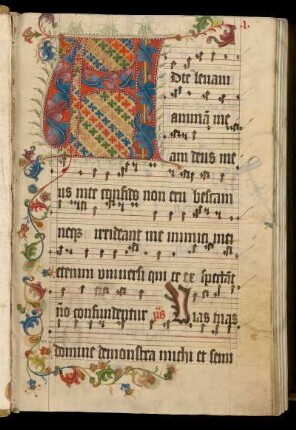 A
Dte levavi
animā me
am deus me
us in te confido non eru bescam
neqȝ irrideant me inimici mei
etenim universi qui te ex spectāt
nō confundentur v̄s Vias tuas
domine demonstra michi et semi